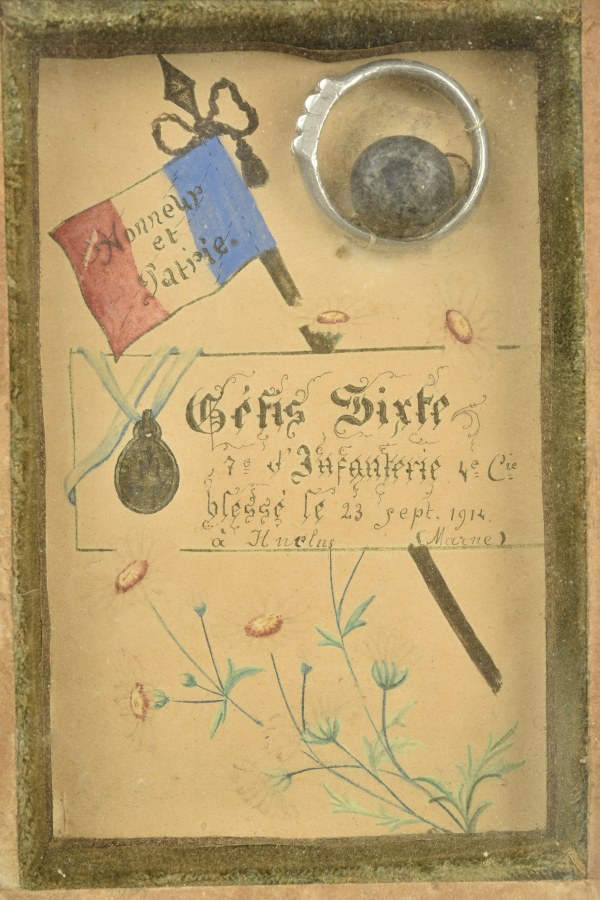 Honneur
et
Patrie.
Gétis Sixte
7e d'Infanterie 4e Cie
blessé le 23 Sept. 1914.
à Hurlus (Marne)